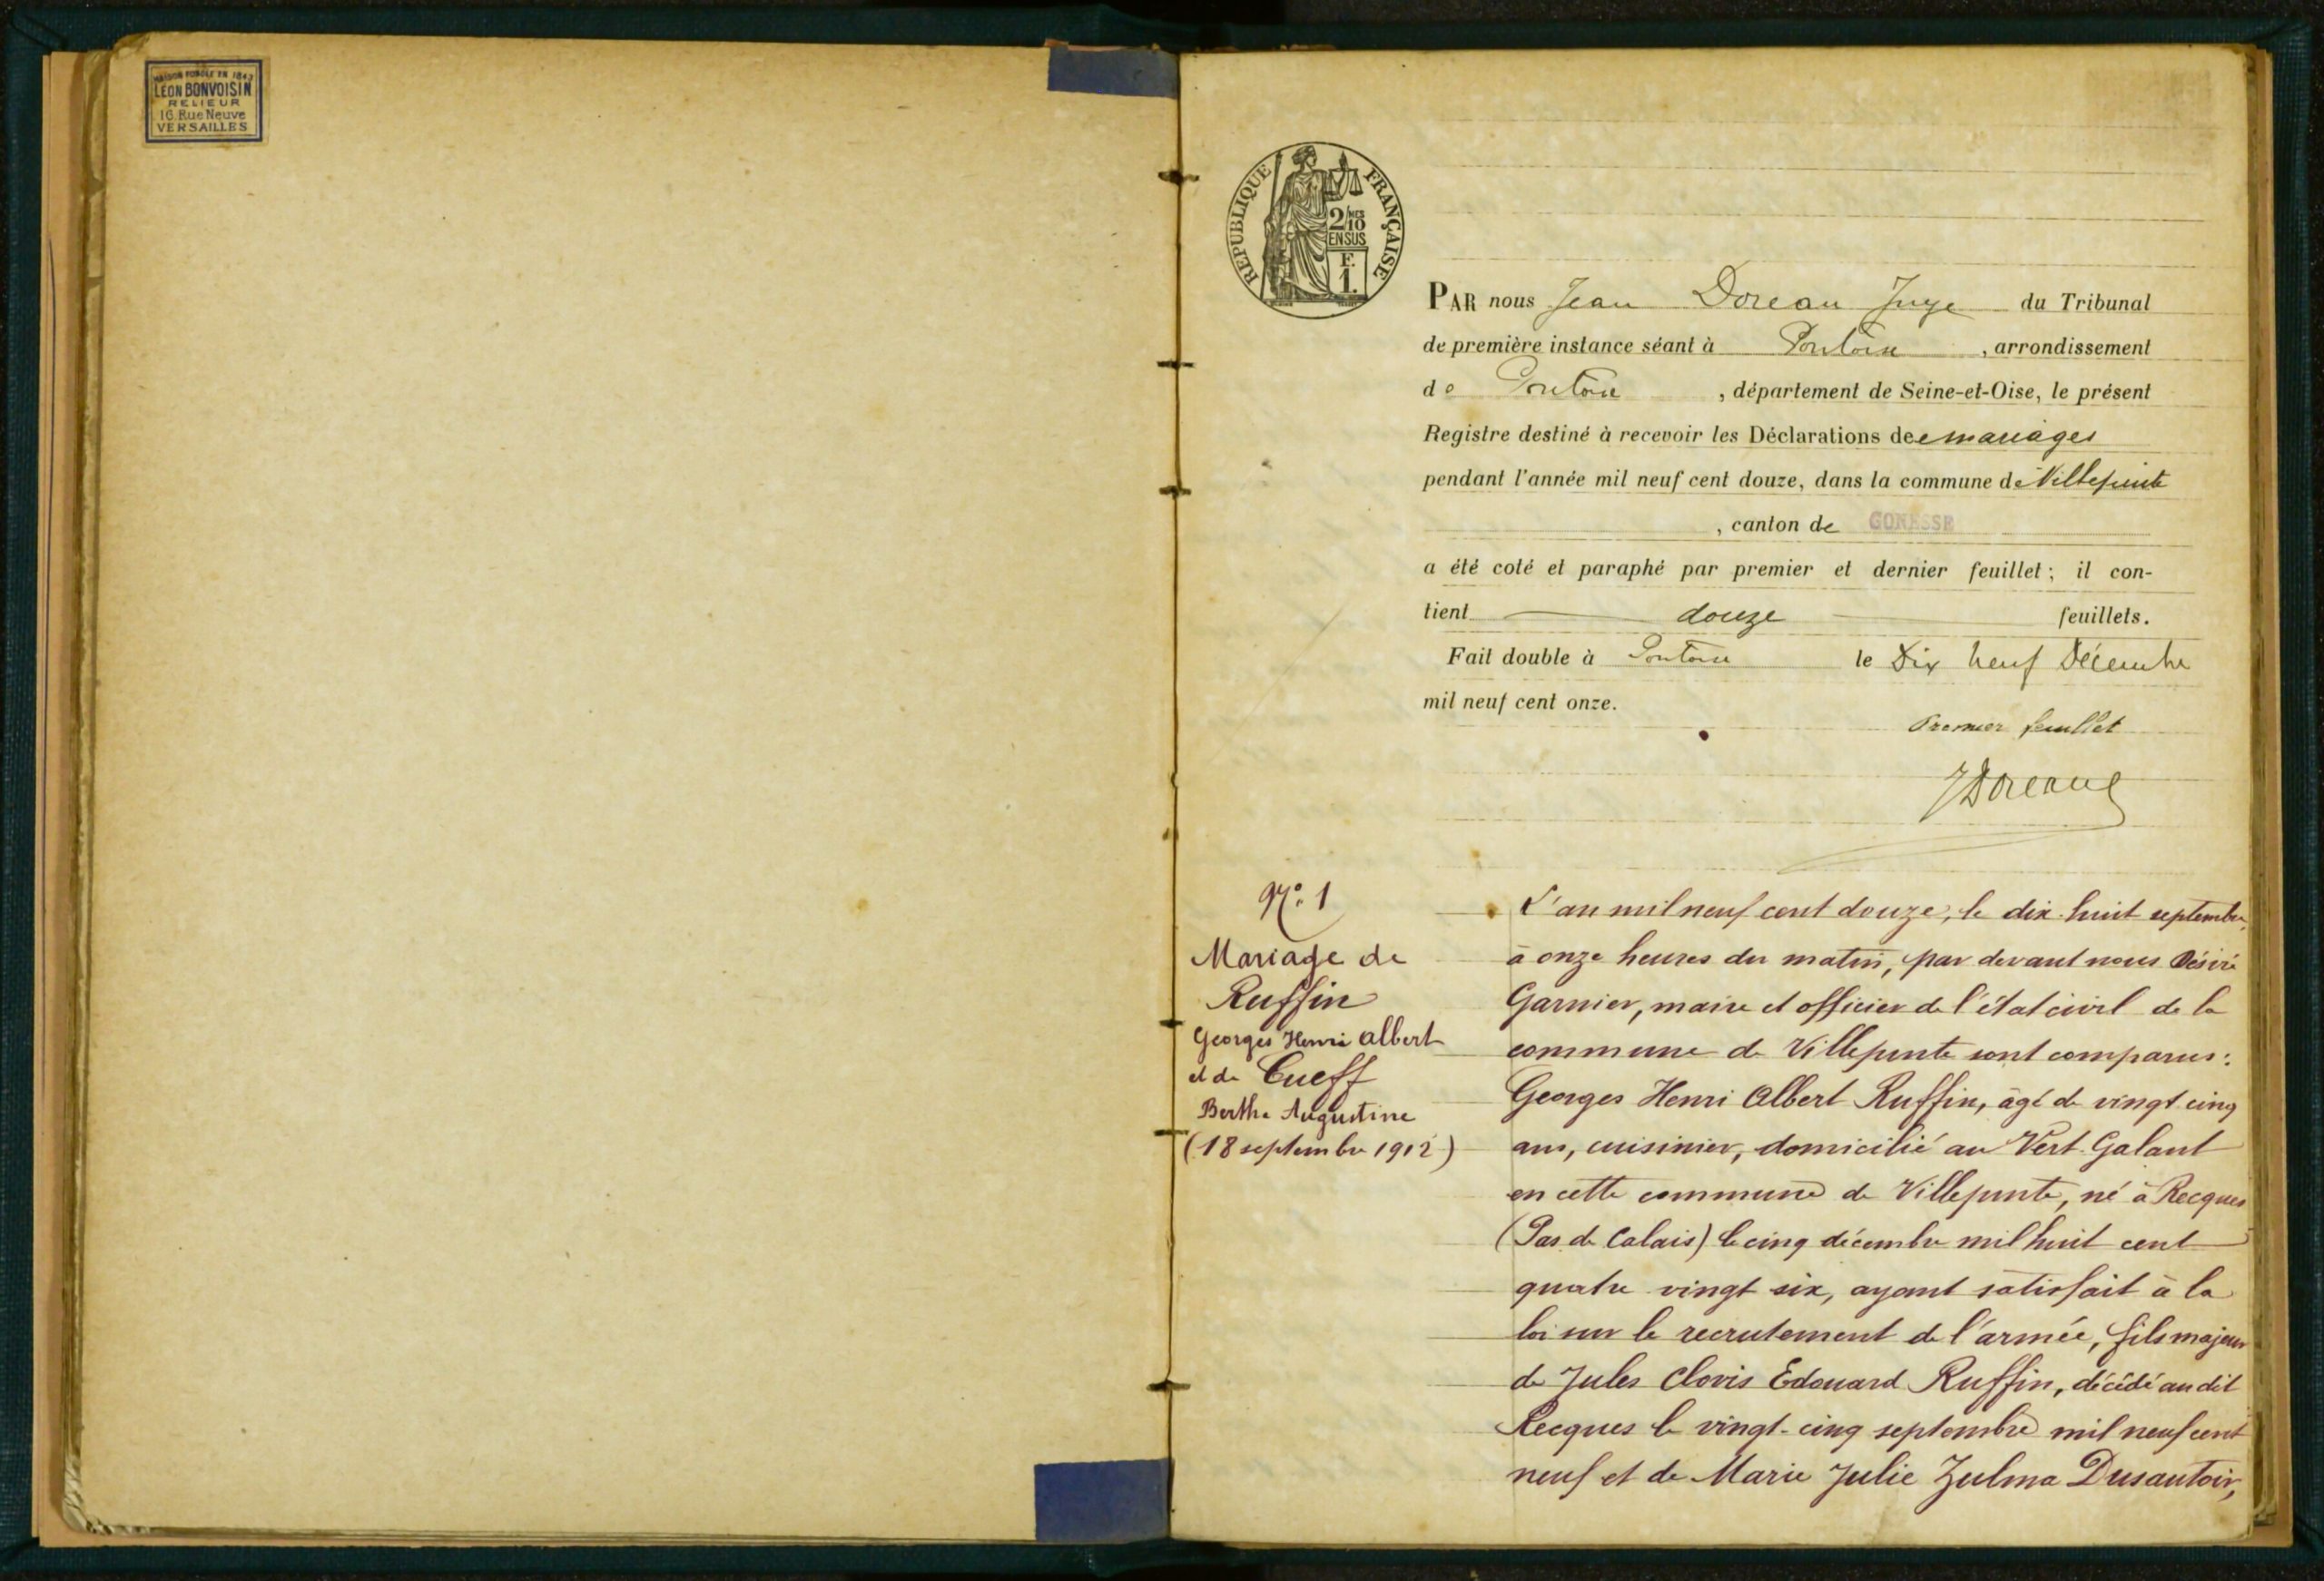 MAISON FONDÉE EN 1843
LÉON BONVOISIN
RELIEUR
16 Rue Neuve
VERSAILLES
REPUBLIQUE FRANÇAISE
2/10 MES
EN SUS
F.
1.
PAR nous Jean Doreau Juge du Tribunal
de première instance séant à Pontoise, arrondissement
de Pontoise, département de Seine-et-Oise, le présent
Registre destiné à recevoir les Déclarations de mariages
pendant l'année mil neuf cent douze, dans la commune de Villepinte
, canton de GONESSE
a été coté et paraphé par premier et dernier feuillet; il con-
tient douze feuillets.
Fait double à Pontoise le Dix neuf Décembre
mil neuf cent onze.
Premier feuillet
JDoreau
N°. 1
Mariage de
Ruffin
Georges Henri Albert
et de Cueff
Berthe Augustine
(18 septembre 1912)
L'an mil neuf cent douze, le dix-huit septembre,
à onze heures du matin, par devant nous Désiré
Garnier, maire et officier de l'état civil de la
commune de Villepinte sont comparus:
Georges Henri Albert Ruffin, âgé de vingt cinq
ans, cuisinier, domicilié au Vert-Galant
en cette commune de Villepinte, né à Recques
(Pas de Calais) le cinq décembre mil huit cent
quatre vingt six, ayant satisfait à la
loi sur le recrutement de l'armée, fils majeur
de Jules Clovis Edouard Ruffin, décédé au dit
Recques le vingt-cinq septembre mil neuf cent
neuf et de Marie Julie Zulma Dusautoir,